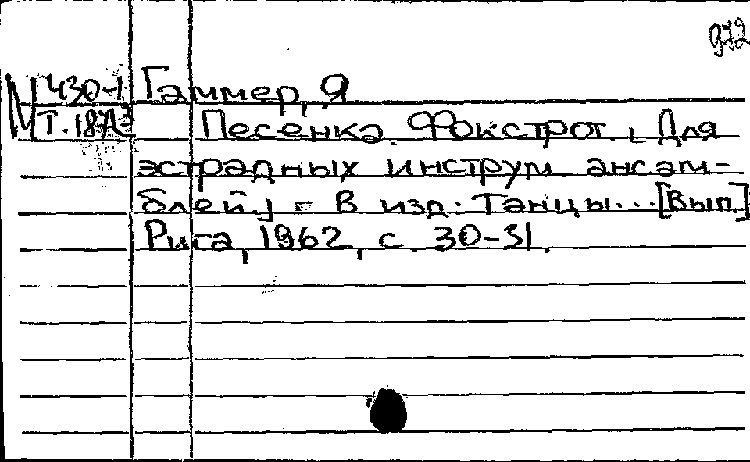 972
М 430-1 Гаммер, Я
Т. 18 Песенка. Фокстрот. [Для
эстрадных инструм ансам-
блей.] = В изд. Танцы... [Вып.]
Рига, 1962, с 30-31.